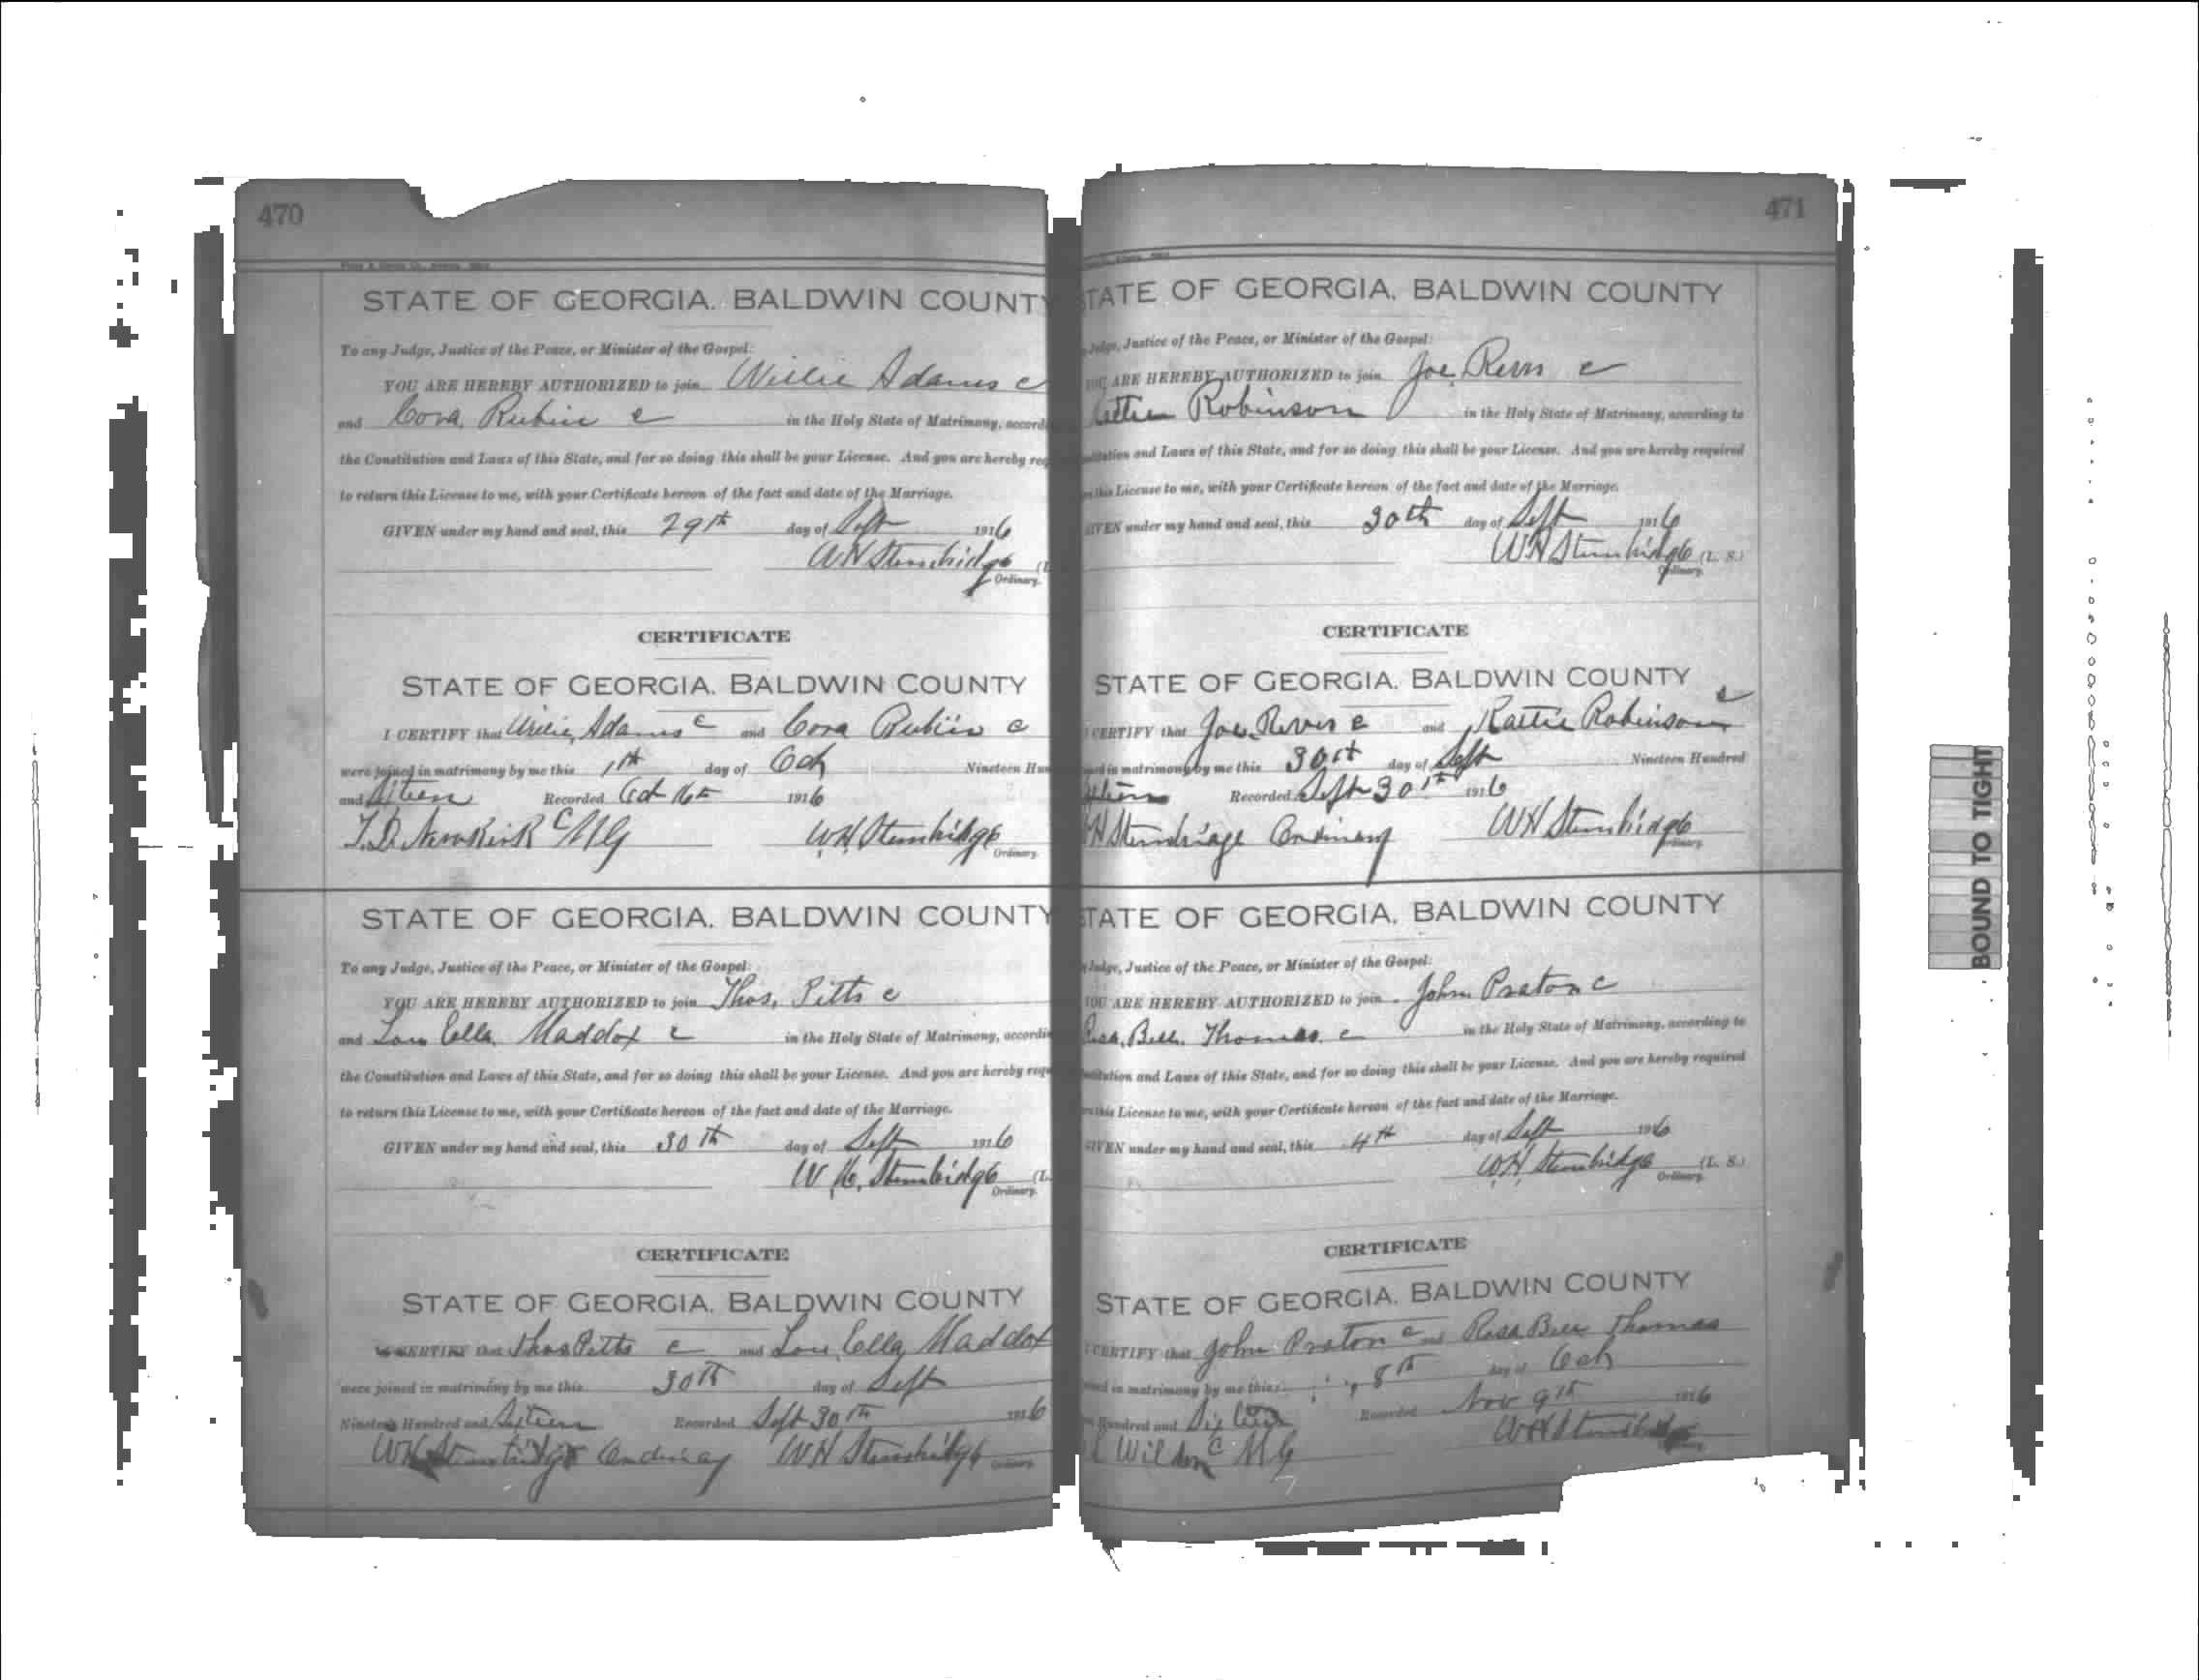 470
STATE OF GEORGIA. BALDWIN COUNTY
To any Judge, Justice of the Peace, or Minister of the Gospel:
YOU ARE HEREBY AUTHORIZED to join Willie Adams c
and Cora Rubin c in the Holy State of Matrimony, accord
the Constitution and Laws of this State, and for so doing this shall be your License. And you are hereby req
to return this License to me, with your Certificate hereon of the fact and date of the Marriage.
GIVEN under my hand and seal, this 29th day of Sept 1916
WH Stembridge (L
Ordinary.
CERTIFICATE
STATE OF GEORGIA. BALDWIN COUNTY
I CERTIFY that Willie Adams c and Cora Rubin c
were joined in matrimony by me this 1th day of Oct Nineteen Hun
and Recorded Oct 16th 1916
T.D. Newkirk c MG WH Stembridge
Ordinary.
STATE OF GEORGIA. BALDWIN COUNTY
To any Judge, Justice of the Peace, or Minister of the Gospel:
YOU ARE HEREBY AUTHORIZED to join Thos. Pitts c
and Lou Ella Maddox c in the Holy State of Matrimony, accordin
the Constitution and Laws of this State, and for so doing this shall be your License. And you are hereby requ
to return this License to me, with your Certificate hereon of the fact and date of the Marriage.
GIVEN under my hand and seal, this 30th day of Sept 1916
W.H. Stembridge (L.
Ordinary.
CERTIFICATE
STATE OF GEORGIA. BALDWIN COUNTY
I CERTIFY that Thos Pitts c and Lou Ella Maddox
were joined in matrimony by me this 30th day of Sept
Nineteen Hundred and Sixteen Recorded Sept 30th 1916
WH Stembridge Ordinary WH Stembridge
Ordinary.
471
STATE OF GEORGIA. BALDWIN COUNTY
Judge, Justice of the Peace, or Minister of the Gospel:
YOU ARE HEREBY AUTHORIZED to join Joe c
Kattie Robinson in the Holy State of Matrimony, according to
and Laws of this State, and for so doing this shall be your License. And you are hereby required
this License to me, with your Certificate hereon of the fact and date of the Marriage.
GIVEN under my hand and seal, this 30th day of Sept 1916
WH Stembridge (L. S.)
Ordinary.
CERTIFICATE
STATE OF GEORGIA. BALDWIN COUNTY
CERTIFY that Joe c and Kattie Robinson c
in matrimony by me this 30th day of Sept Nineteen Hundred
Recorded Sept 30th 1916
WH Stembridge Ordinary WH Stembridge
Ordinary.
STATE OF GEORGIA. BALDWIN COUNTY
Judge, Justice of the Peace, or Minister of the Gospel:
YOU ARE HEREBY AUTHORIZED to join John Praton c
Rosa Bell Thomas c in the Holy State of Matrimony, according to
and Laws of this State, and for so doing this shall be your License. And you are hereby required
this License to me, with your Certificate hereon of the fact and date of the Marriage.
GIVEN under my hand and seal, this 4th day of Sept 1916
W.H. Stembridge (L. S.)
Ordinary.
CERTIFICATE
STATE OF GEORGIA. BALDWIN COUNTY
CERTIFY that John Praton c and Rosa Bell Thomas
in matrimony by me this 8th day of Oct
Hundred and Sixteen Recorded Nov 9th 1916
Wilson c MG WH Stembridge
BOUND TO TIGHT